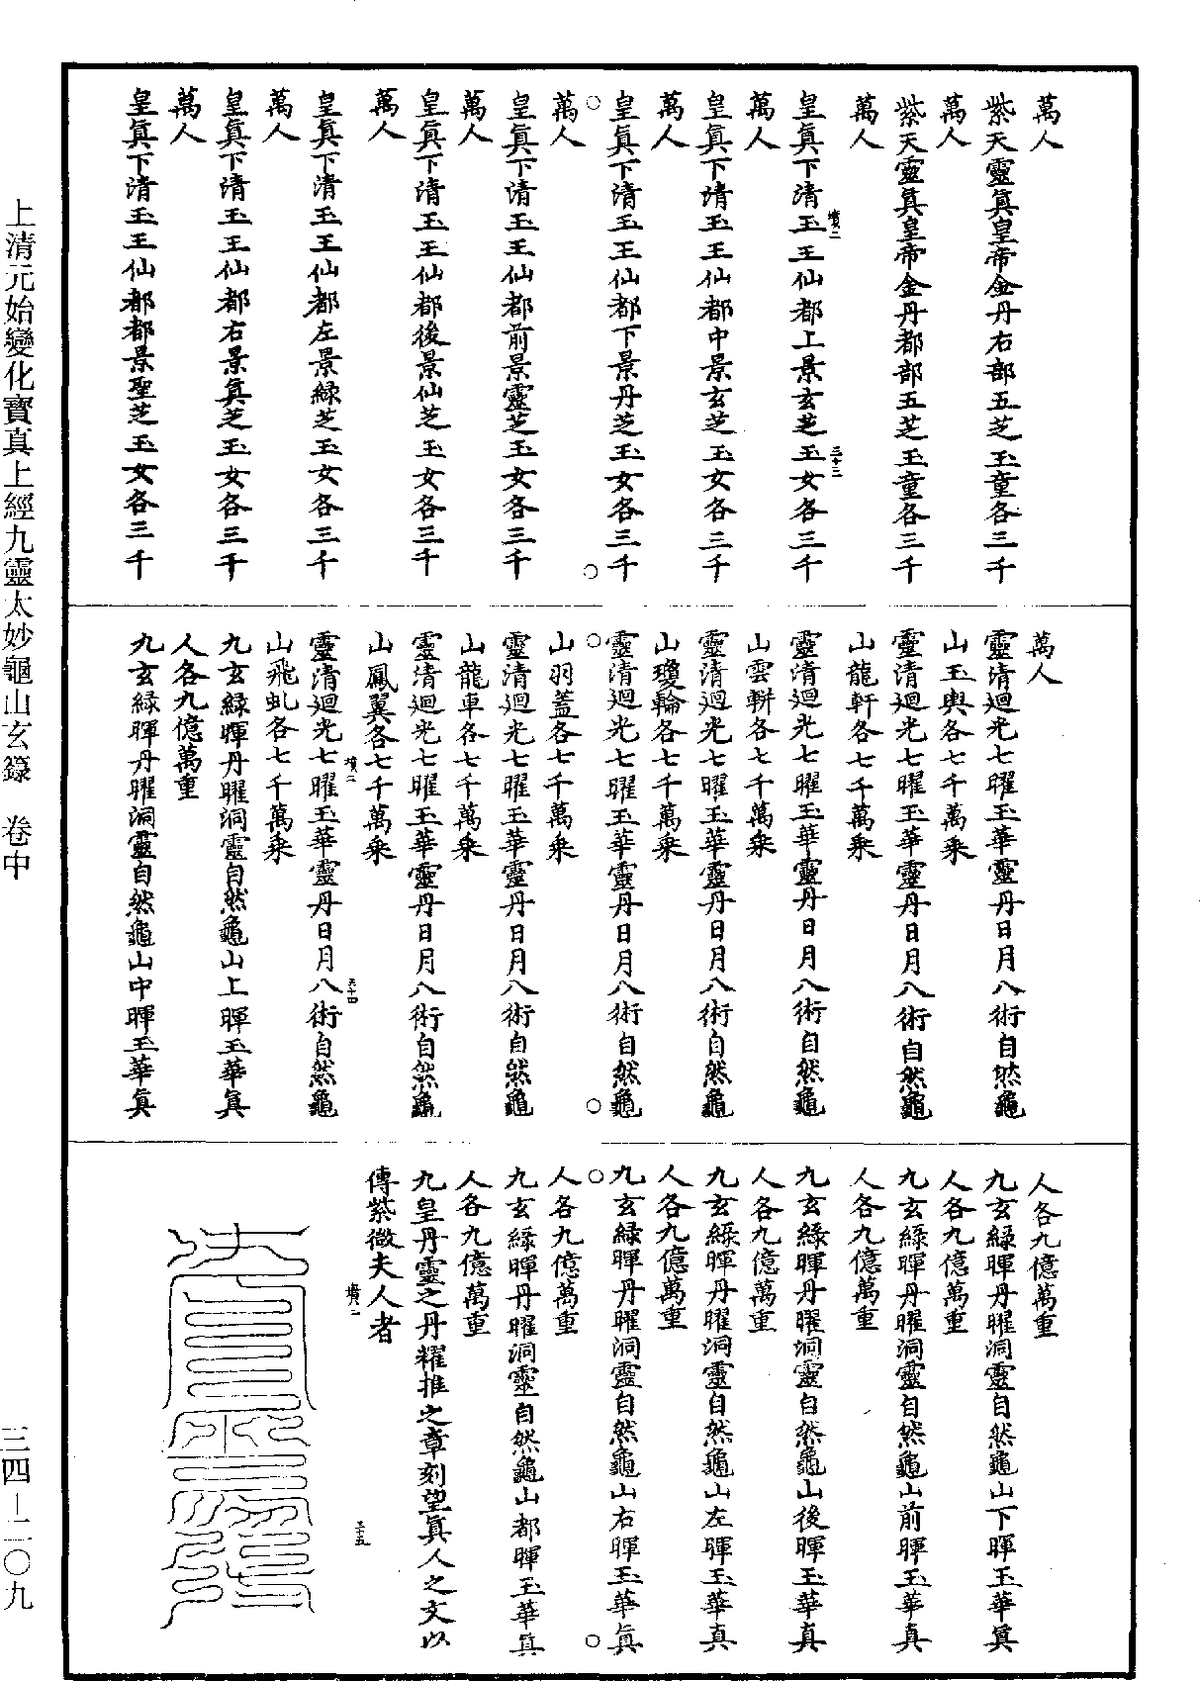 萬人
紫天靈真皇帝金丹右部五芝玉童各三千
萬人
紫天靈真皇帝金丹都部五芝玉童各三千
萬人
墳二
三十三
皇真下清玉王仙都上景玄芝玉女各三千
萬人
皇真下清玉王仙都中景玄芝玉女各三千
萬人
皇真下清玉王仙都下景丹芝玉女各三千
萬人
皇真下清玉王仙都前景靈芝玉女各三千
萬人
皇真下清玉王仙都後景仙芝玉女各三千
萬人
皇真下清玉王仙都左景綠芝玉女各三千
萬人
皇真下清玉王仙都右景真芝玉女各三千
萬人
皇真下清玉王仙都都景聖芝玉女各三千
萬人
靈清迴光七曜玉華靈丹日月八術自然龜
山玉輿各七千萬乘
靈清迴光七曜玉華靈丹日月八術自然龜
山龍軒各七千萬乘
靈清迴光七曜玉華靈丹日月八術自然龜
山雲輧各七千萬乘
靈清迴光七曜玉華靈丹日月八術自然龜
山瓊輪各七千萬乘
靈清迴光七曜玉華靈丹日月八術自然龜
山羽蓋各七千萬乘
靈清迴光七曜玉華靈丹日月八術自然龜
山龍車各七千萬乘
靈清迴光七曜玉華靈丹日月八術自然龜
山鳳翼各七千萬乘
墳二
三十四
靈清迴光七曜玉華靈丹日月八術自然龜
山飛虬各七千萬乘
九玄綠暉丹曜洞靈自然龜山上暉玉華真
人各九億萬重
九玄綠暉丹曜洞靈自然龜山中暉玉華真
人各九億萬重
九玄綠暉丹曜洞靈自然龜山下暉玉華真
人各九億萬重
九玄綠暉丹曜洞靈自然龜山前暉玉華真
人各九億萬重
九玄綠暉丹曜洞靈自然龜山後暉玉華真
人各九億萬重
九玄綠暉丹曜洞靈自然龜山左暉玉華真
人各九億萬重
九玄綠暉丹曜洞靈自然龜山右暉玉華真
人各九億萬重
九玄綠暉丹曜洞靈自然龜山都暉玉華真
人各九億萬重
九皇丹靈之丹耀推之章刻望真人之文以
傳紫微夫人者
墳二
三十五
上清元始變化寶真上經九靈太妙龜山玄籙　卷中
三四—二〇九